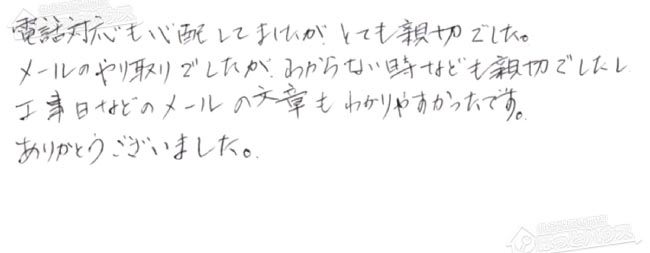 電話対応も心配してましたが、とても親切でした。
メールのやり取りでしたが、わからない時なども親切でしたし
工事日などのメールの文章もわかりやすかったです。
ありがとうございました。